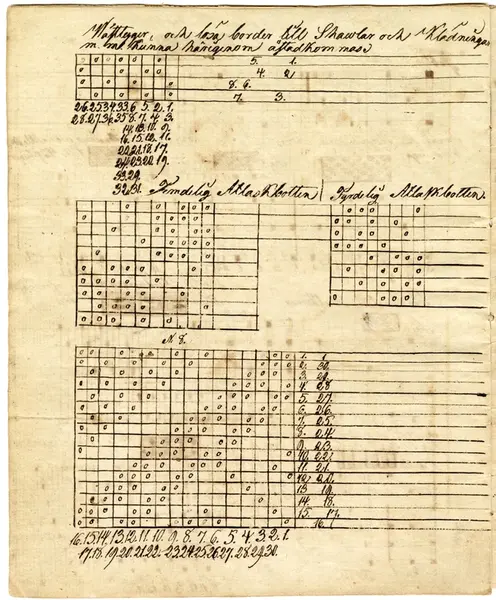 och lösa border till Shawlar och Klädningar
m. m. kunna härigenom åstadkommas.
5. 1.
4. 2.
8. 6.
7. 3.
26. 25. 34. 33. 6. 5. 2. 1.
28. 27. 36. 35. 8. 7. 4. 3.
14. 13. 10. 9.
16. 15. 12. 11.
22. 21. 18. 17.
24. 23. 20. 19.
30. 29.
32. 31.
Femdelig Atlaskbotten Fyrdelig Atlaskbotten.
N 8.
1. 1.
2. 30.
3. 29.
4. 28.
5. 27.
6. 26.
7. 25.
8. 24.
9. 23.
10. 22.
11. 21.
12. 20.
13. 19.
14. 18.
15. 17.
16.
16. 15. 14. 13. 12. 11. 10. 9. 8. 7. 6. 5. 4. 3. 2. 1.
17. 18. 19. 20. 21. 22. 23. 24. 25. 26. 27. 28. 29. 30.